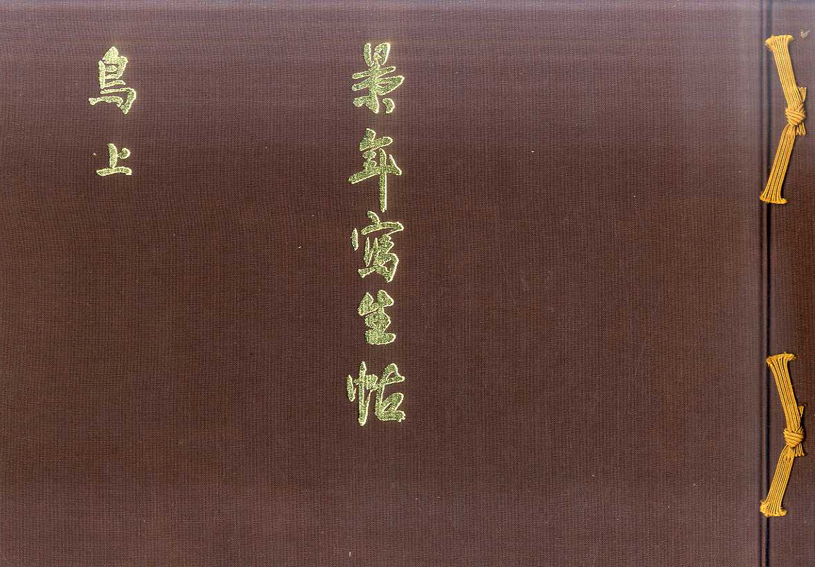 景年写生帖
鳥上